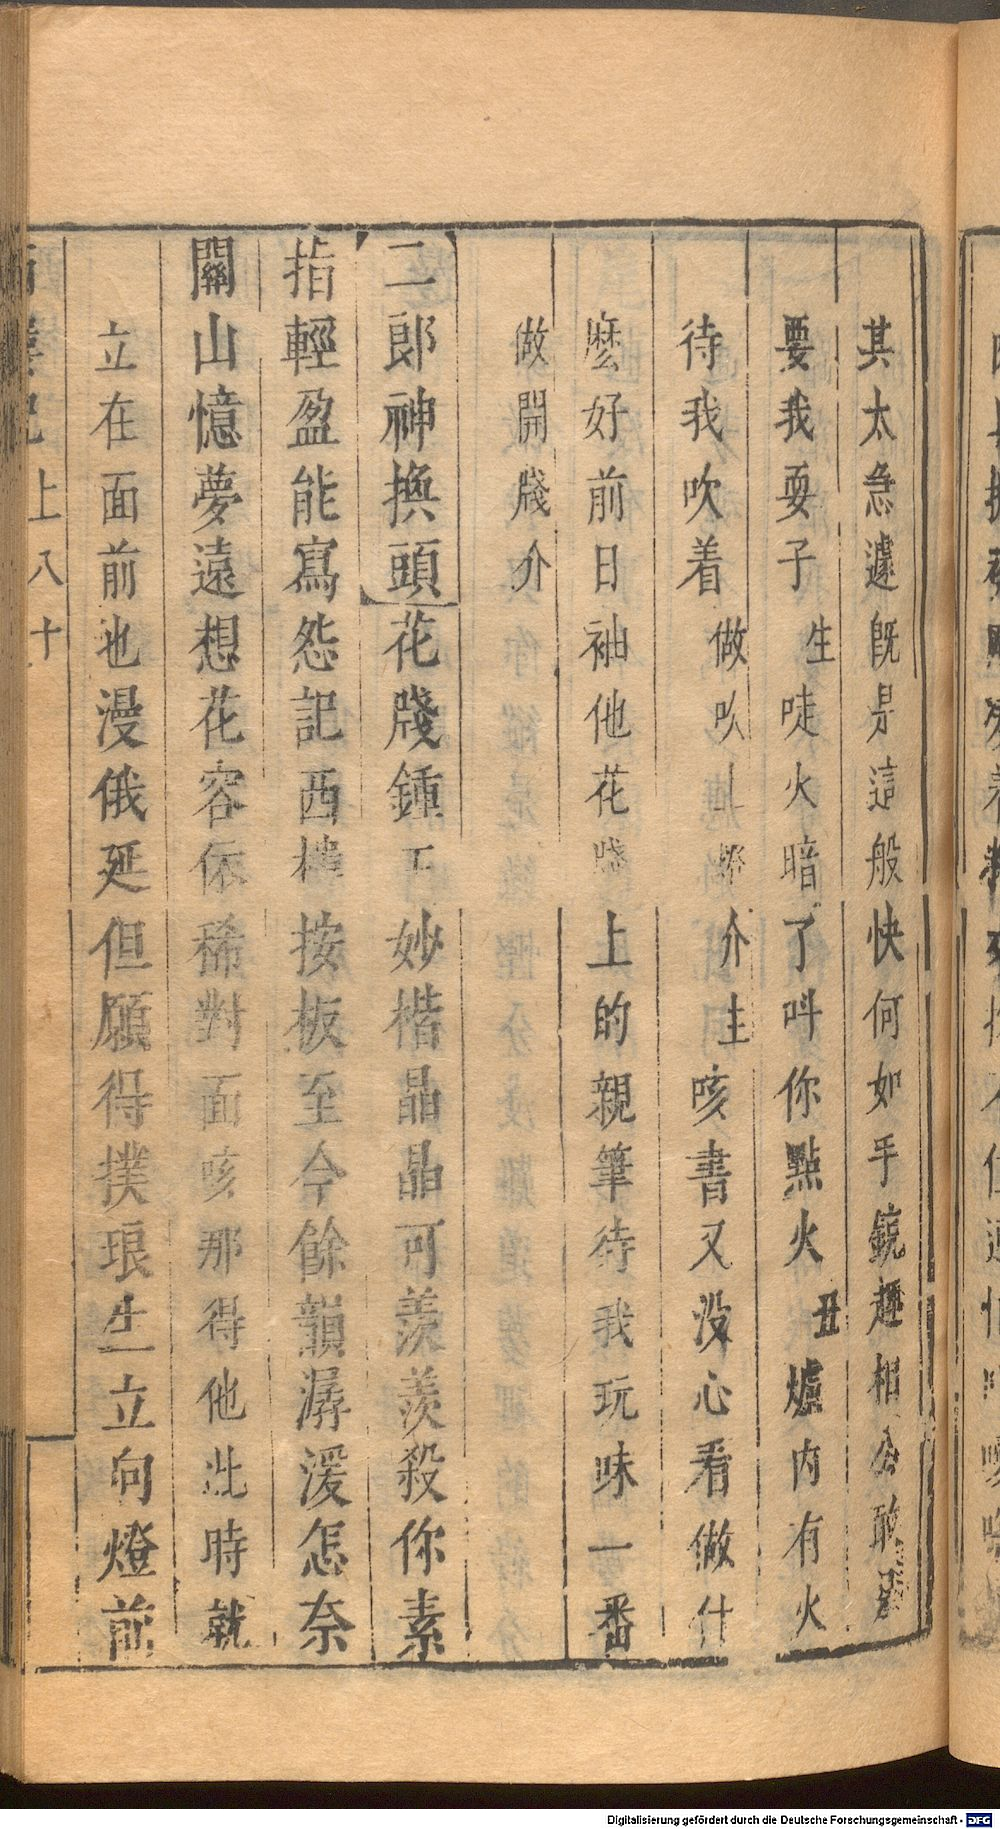 其太急遽旣是這般快何如手鏡趣相公敢是
要我耍子生唗火暗了呌你點火丑爐内有火
待我吹着做吹介生咳書又没心看做什
麽好前日袖他花箋上的親筆待我玩味一番
做開牋介
二郎神換頭花牋鍾王妙楷晶晶可羨羨殺你素
指輕盈能寫怨記西樓按板至今餘韻潺湲怎奈
關山憶夢遠想花容依稀對面咳那得他此時就
立在面前也漫俄延但願得撲琅生立向燈前
上 八十
Digitalisierung gefördert durch die Deutsche Forschungsgemeinschaft - DFG